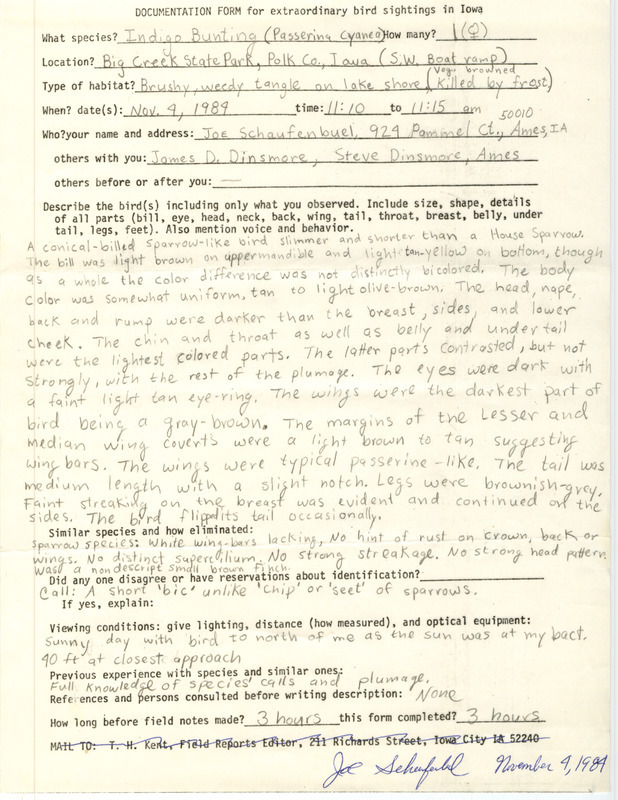 DOCUMENTATION FORM for extraordinary bird sightings in Iowa
What species? Indigo Bunting (Passerina Cyanea) How many? 1(♀)
Location? Big Creek State Park, Polk Co., Iowa (S.W. Boat ramp)
Type of habitat? Brushy, weedy tangle on lake shore (Veg. browned killed by frost)
When? date(s): Nov. 4, 1984 time: 11:10 to 11:15 am
Who? your name and address: Joe Schaufenbuel, 924 Pammel Ct., Ames, IA 50010
others with you: James D. Dinsmore, Steve Dinsmore, Ames
others before or after you: —
Describe the bird(s) including only what you observed. Include size, shape, details
of all parts (bill, eye, head, neck, back, wing, tail, throat, breast, belly, under
tail, legs, feet). Also mention voice and behavior.
A conical-billed sparrow-like bird slimmer and shorter than a House Sparrow.
The bill was light brown on uppermandible and light tan-yellow on bottom, though
as a whole the color difference was not distinctly bicolored. The body
color was somewhat uniform, tan to light olive-brown. The head, nape,
back and rump were darker than the breast, sides, and lower
cheek. The chin and throat as well as belly and undertail
were the lightest colored parts. The latter parts contrasted, but not
strongly, with the rest of the plumage. The eyes were dark with
a faint light tan eye-ring. The wings were the darkest part of
bird being a gray-brown. The margins of the Lesser and
median wing coverts were a light brown to tan suggesting
wing bars. The wings were typical passerine-like. The tail was
medium length with a slight notch. Legs were brownish-grey.
Faint streaking on the breast was evident and continued on the
sides. The bird flipped its tail occasionally.
Similar species and how eliminated:
Sparrow species: White wing-bars lacking, No hint of rust on crown, back or
wings. No distinct supercilium. No strong streakage. No strong head pattern.
Was a nondescript small brown finch.
Did any one disagree or have reservations about identification?
Call: A short 'bic' unlike 'chip' or 'seet' of sparrows.
If yes, explain:
Viewing conditions: give lighting, distance (how measured), and optical equipment:
Sunny day with bird to north of me as the sun was at my back.
40 ft at closest approach
Previous experience with species and similar ones:
Full knowledge of species' calls and plumage.
References and persons consulted before writing description: None
How long before field notes made? 3 hours this form completed? 3 hours
MAIL TO: T. H. Kent, Field Reports Editor, 211 Richards Street, Iowa City IA 52240
Joe Schaufenbuel November 4, 1984